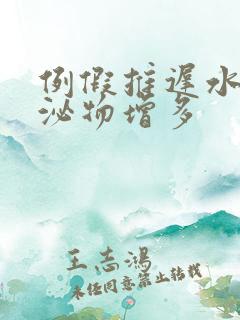 例假推遲水
泌物增多
王志鴻
未经同意禁止转载